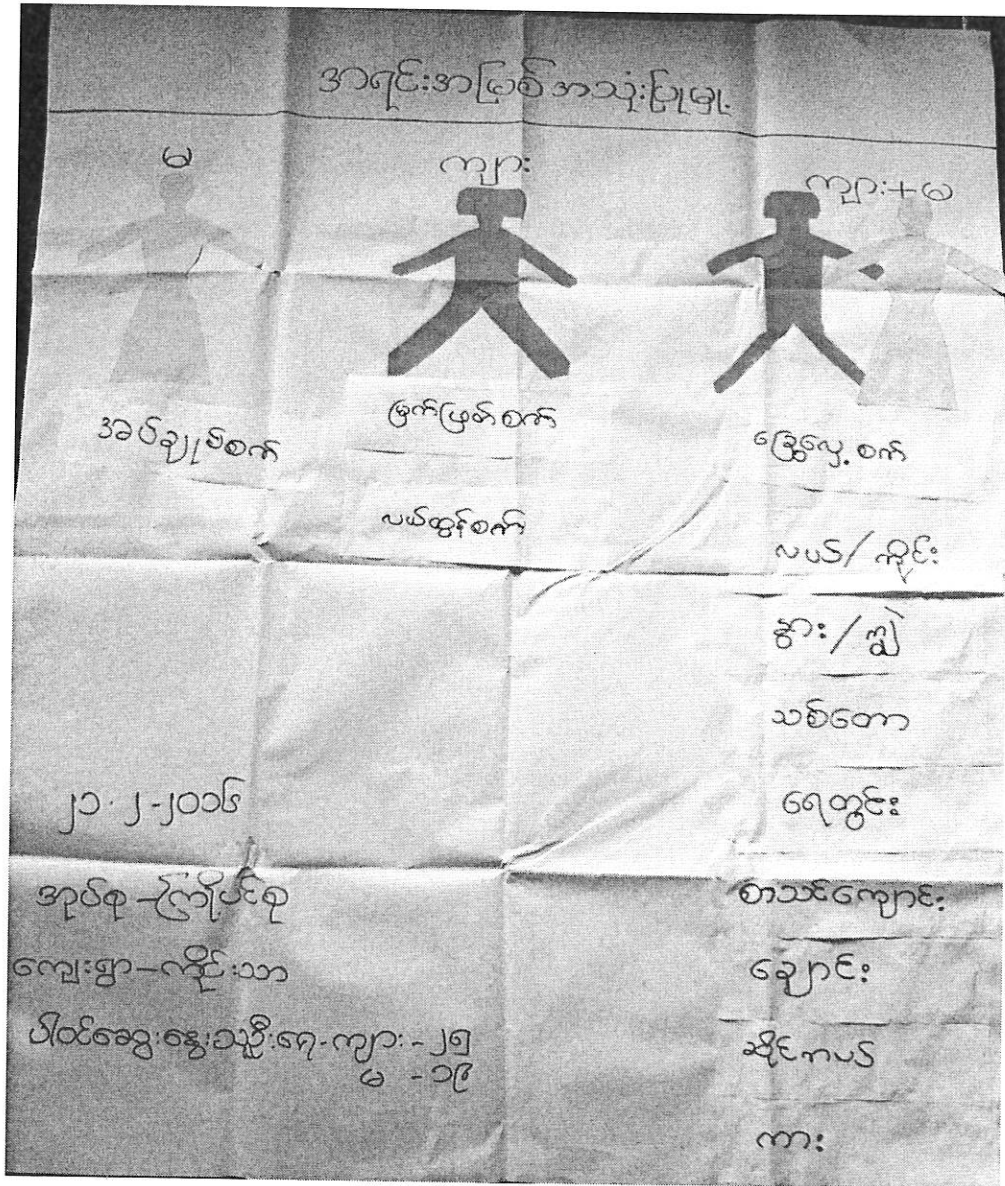 အရင်းအမြစ်အသုံးပြုမှု
မ
ကျား
ကျား+မ
အပ်ချုပ်စက်
မြက်ဖြတ်စက်
လယ်ထွန်စက်
ခြွေလှေ့စက်
လယ်/ကိုင်း
နွား/ကျွဲ
သစ်တော
ရေတွင်း
စာသင်ကျောင်း
ချောင်း
ဆိုင်ကယ်
ကား
၂၁.၂-၂၀၁၆
အုပ်စု-ကြိုပင်စု
ကျေးရွာ-ကိုင်းသာ
ပါဝင်ဆွေးနွေးသူဦးရေ-ကျား-၂၅
မ-၁၉